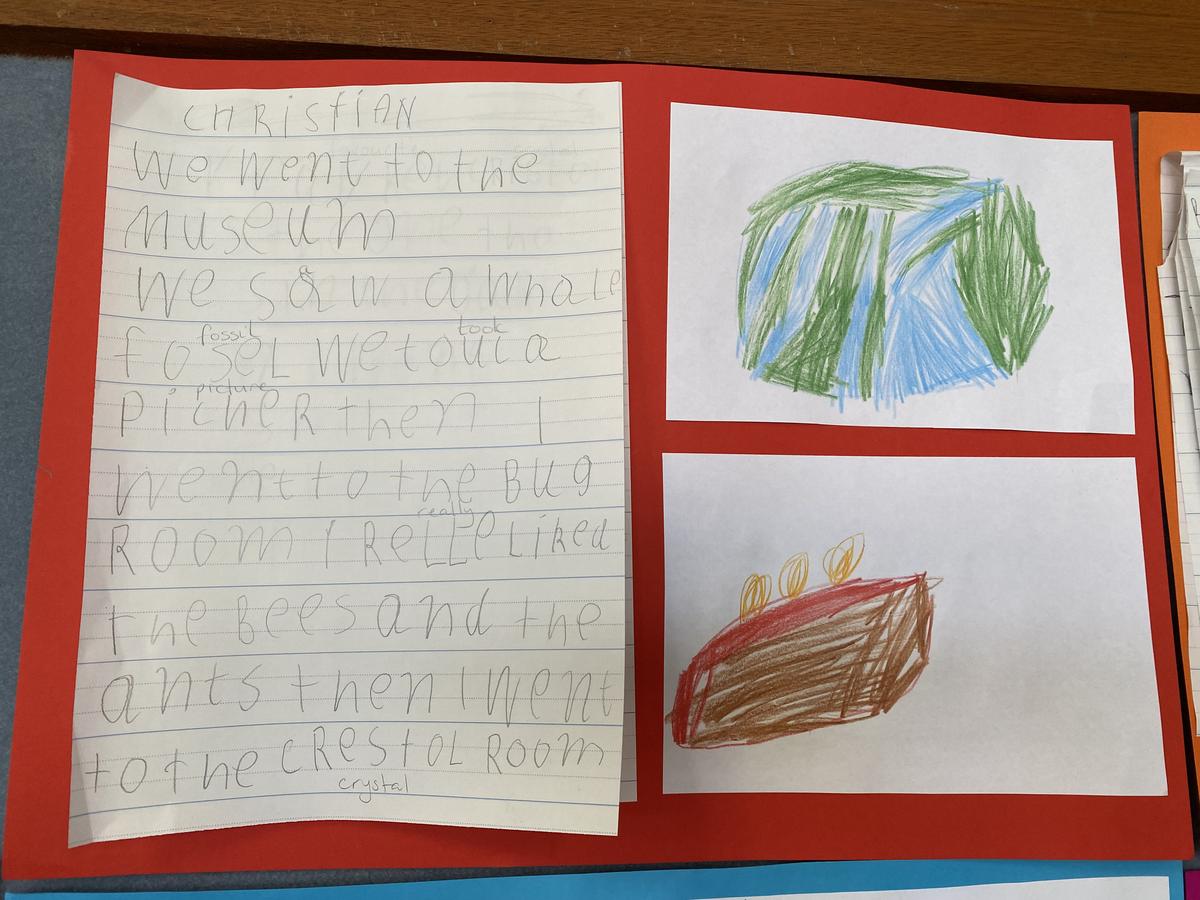 CHRiSTiAN
We Went to the
museum
We saw a whale
fossil took
foseL We touc a
picture
PicheR then I
went to the BUg
really
Room I ReLLe Liked
the Bees and the
ants then I Went
to the CResToL Room
crystal